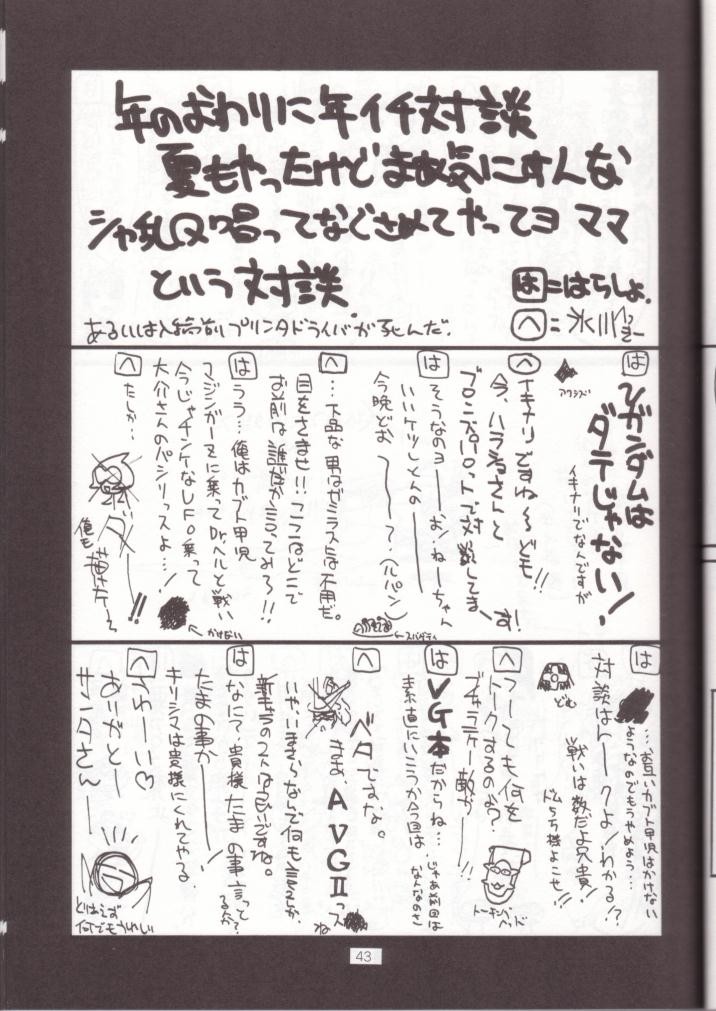 年のおわりに年イチ対談
夏もやったけどまぁ気にすんな
シャ乱Q唱ってなぐさめてやってヨ ママ
という対談
は=はらしょ.
へ=氷川
あるいは入稿前プリンタドライバが死んだ.
は
Vガンダムは
ダテじゃない!
イキナリでなんですが
アクシズ
へ
イキナリですね〜ども!!
今、ハラショさんと
ブロンズパロットで対談してます!
は
そうなのヨ――お!ねーちゃん
いいケツしとんの――
今晩どお
〜〜?(パパン)
←スパゲティ
へ
…下品な男はゼミラスには不用だ。
目をさませ!!ここはどこで
お前は誰だか言ってみろ!!
は
うう…俺はカブト甲児
マジンガーZに乗ってDr.ヘルと戦い
今じゃチンケなUFO乗って
大介さんのパシリっスよ…!
←かけない
へ
たしか…
ダ――!!
俺も描けた〜
は
…、お互いカブト甲児はかけない
ようなのでもうやめよう…
対談はトークよ!わかる!?
戦いは数だよ兄貴!
ドムら5様よこせ!!
どむ
へ
つーても何を
トークするのよ?
ブチャラテー敵が――!!
トーキング・ヘッド
は
VG本だからね…
素直にいこうか今回は
じゃあ前回は
なんなのさ
へ
ベタですな。
まま、AVGⅡっスね
いや、いまさらなんで何も言えんが、
新キャラのコスは良いですね。
は
なにィ?貴様たまの事言って
るな?
たまの事か――!
キリシマは貴様にくれてやる.
へ
うわーい♡
ありがとー
サンタさん――
とりあえず
何でもうれしい
43